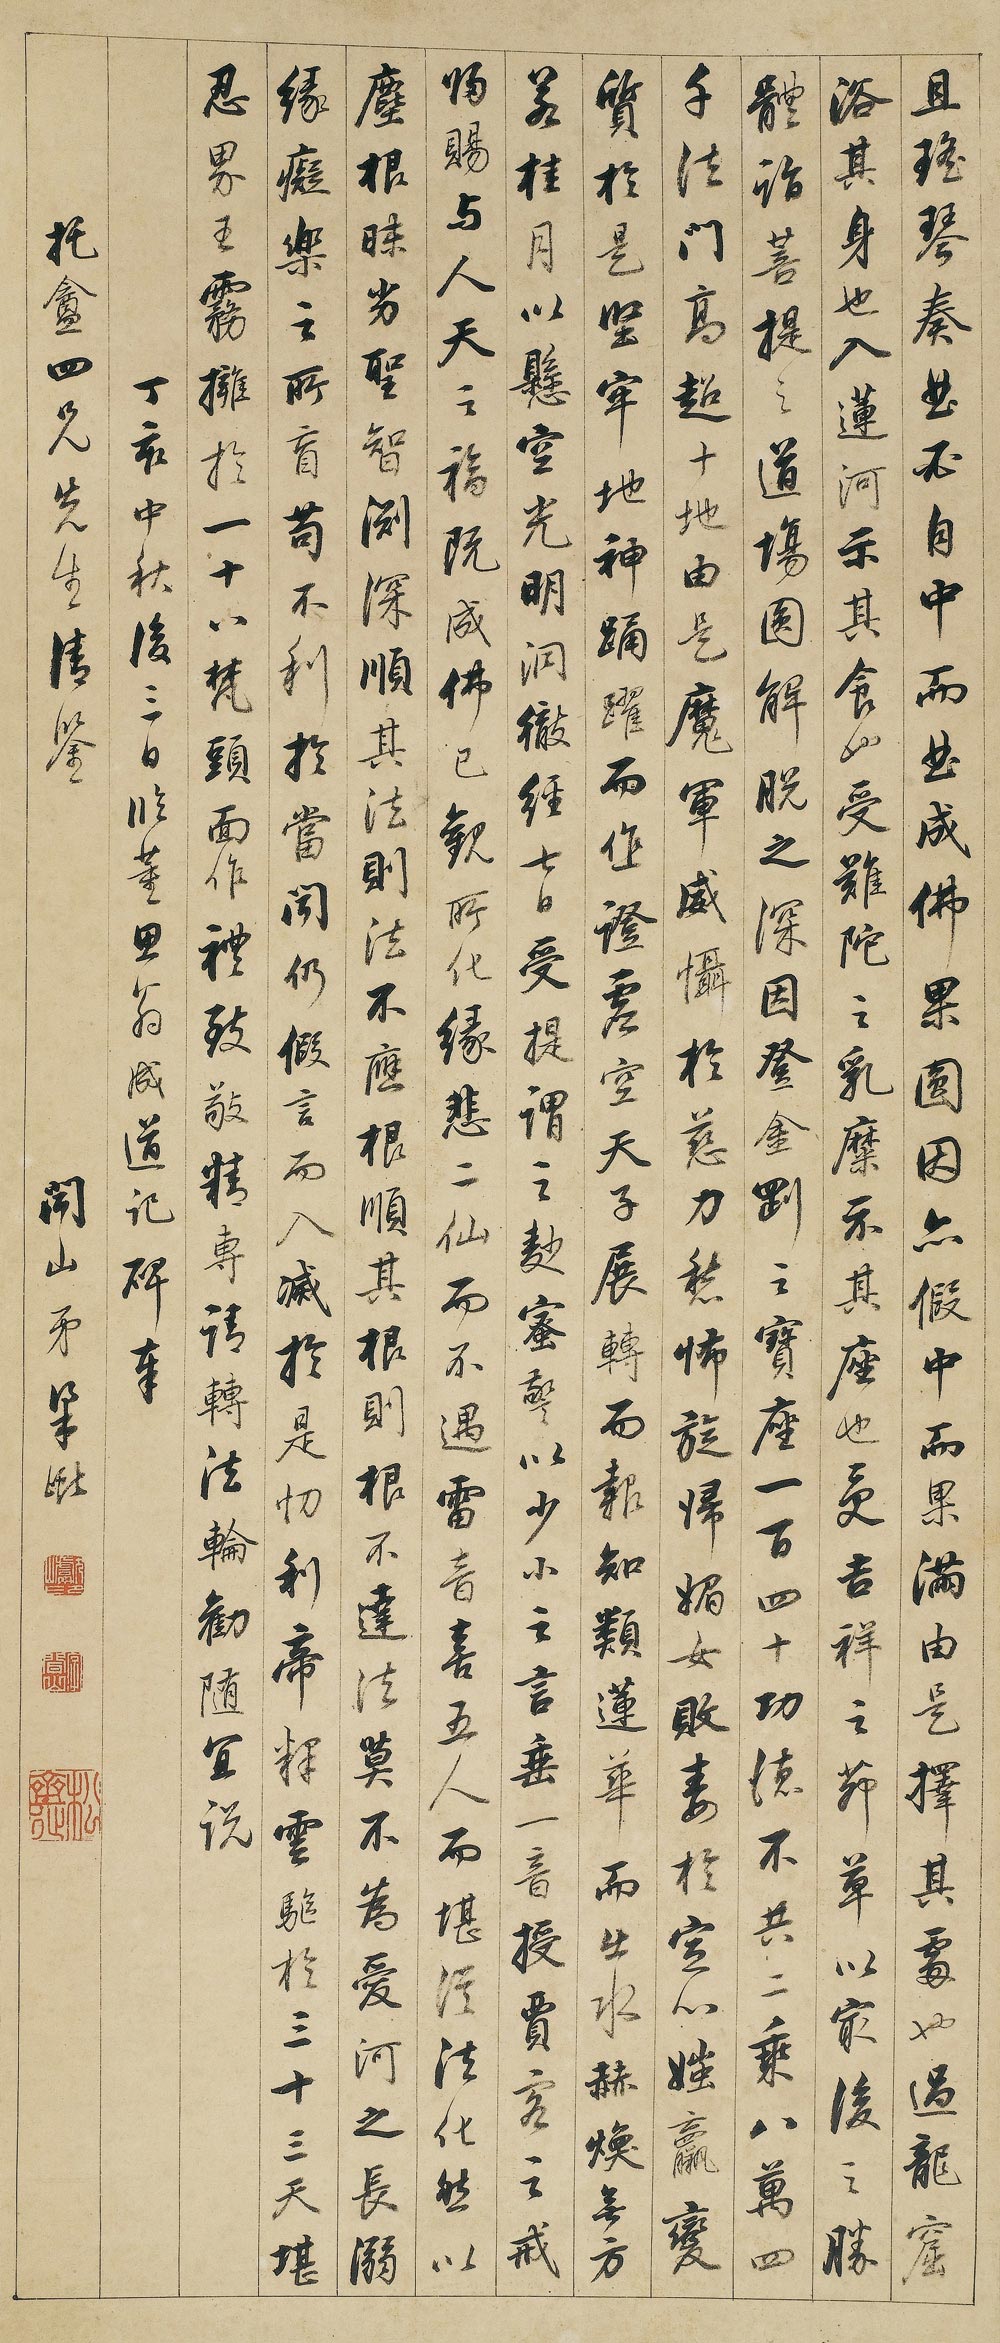 且瑤琴奏曲不自中而曲成佛果圓因亦假中而果滿由是擇其處也過龍窟
浴其身也入蓮河示其食也受難陀之乳糜示其座也受吉祥之茆草以最後之勝
體詣菩提之道場圓解脫之深因登金剛之寶座一百四十功德不共二乘八萬四
千法門高超十地由是魔軍威懾於慈力愁怖旋歸媚女敗毒於定心媸羸變
質於是堅牢地神踊躍而作證虛空天子展轉而報知類蓮華而出水赫煥無方
若桂月以懸空光明洞徹經七日受提謂之麨蜜警以少小之言垂一音授賈客之戒
歸賜与人天之福既成佛已觀所化緣悲二仙而不遇雷音喜五人而堪從法化然以
塵根昧劣聖智淵深順其法則法不應根順其根則根不達法莫不為愛河之長溺
緣癡樂之所盲苟不利於當聞仍假言而入滅於是忉利帝釋雲驅於三十三天堪
忍界王霧擁於一十八梵頭面作禮致敬精專請轉法輪勸隨宜說
丁亥中秋後三日臨董思翁成道記碑奉
托盦四兄先生清鑒
聞山弟梁巘